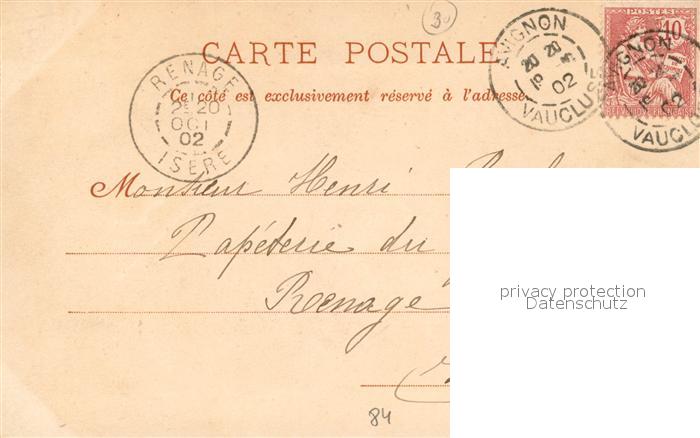 30
CARTE POSTALE
Ce côté est exclusivement réservé à l'adresse
RENAGE
20
OCT
02
ISERE
AVIGNON
02
VAUCLUSE
POSTES
10
AVIGNON
02
VAUCLUSE
Monsieur Henri
Papéterie du
Renage
privacy protection
Datenschutz
84